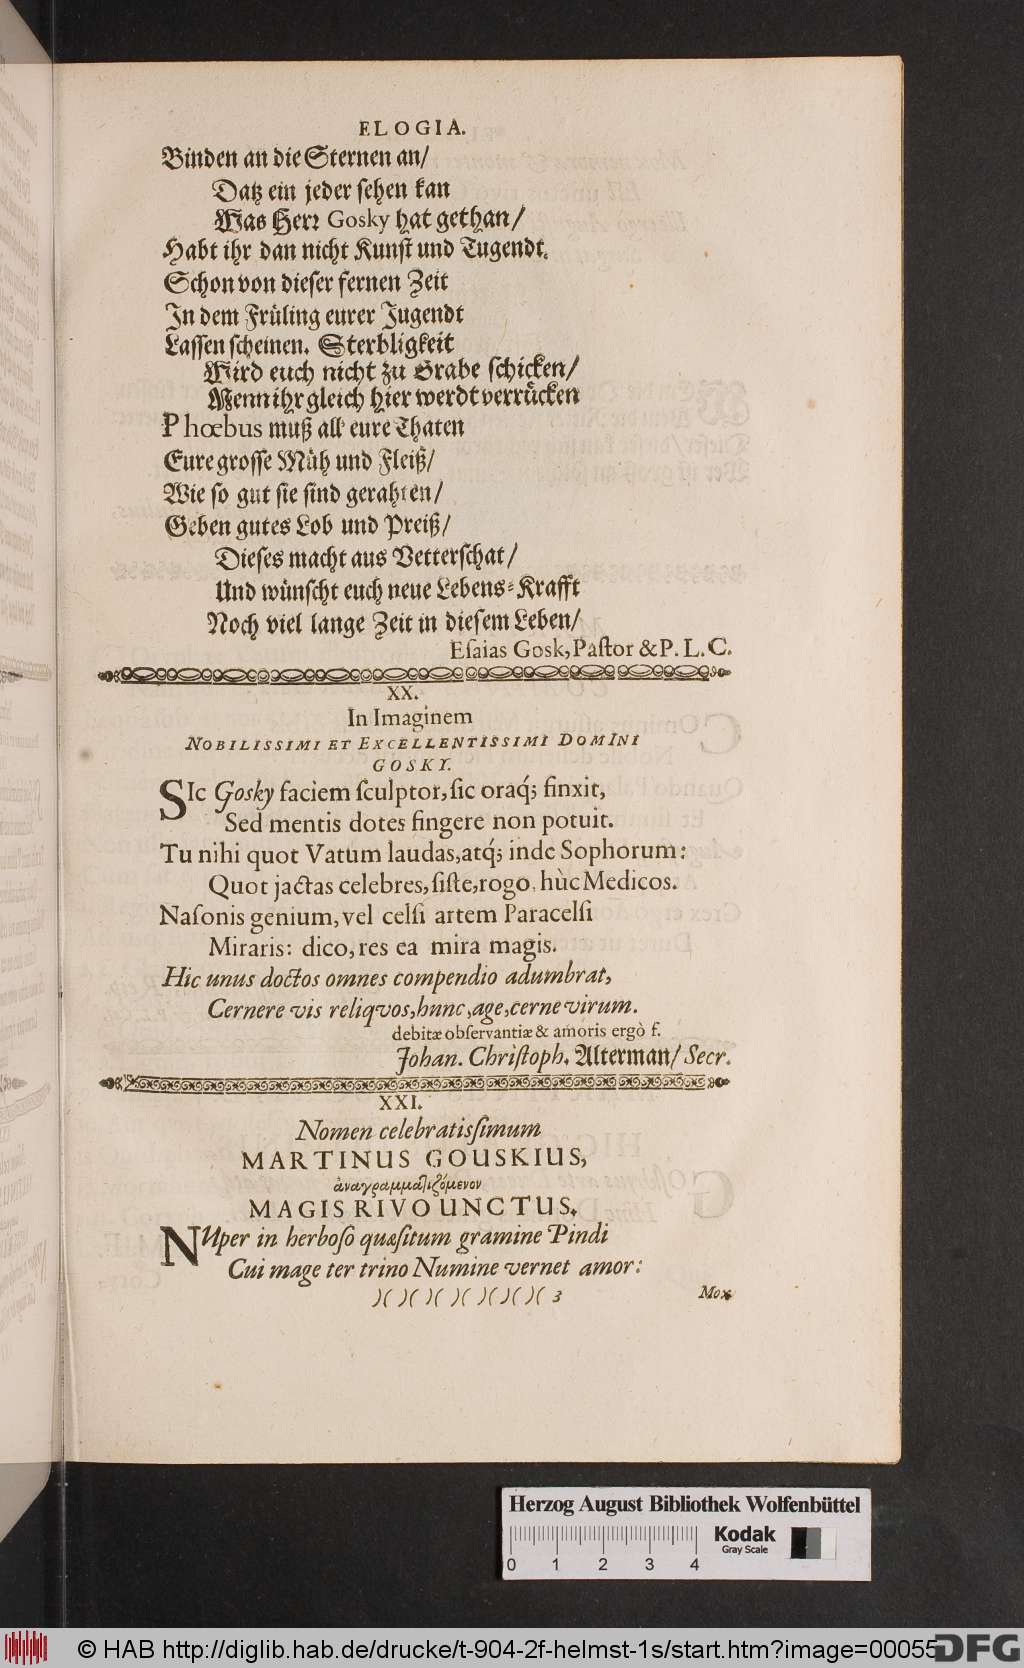 ELOGIA.
Binden an die Sternen an/
Datz ein jeder sehen kan
Was Herꝛ Gosky hat gethan/
Habt ihr dan nicht Kunst und Tugendt.
Schon von dieser fernen Zeit
In dem Früling eurer Jugendt
Lassen scheinen. Sterbligkeit
Wird euch nicht zu Grabe schicken/
Wenn ihr gleich hier werdt verrücken
Phœbus muß all eure Thaten
Eure grosse Müh und Fleiß/
Wie so gut sie sind gerahten/
Geben gutes Lob und Preiß/
Dieses macht aus Vetterschat/
Und wünscht euch neue Lebens-Krafft
Noch viel lange Zeit in diesem Leben/
Eſaias Gosk, Paſtor & P. L. C.
XX.
In Imaginem
NOBILISSIMI ET EXCELLENTISSIMI DOMINI
GOSKY.
SIc Gosky faciem ſculptor, ſic oraq́; finxit,
Sed mentis dotes fingere non potuit.
Tu nihi quot Vatum laudas, atq́; inde Sophorum:
Quot jactas celebres, ſiſte, rogo, hùc Medicos.
Naſonis genium, vel celſi artem Paracelſi
Miraris: dico, res ea mira magis.
Hic unus doctos omnes compendio adumbrat,
Cernere vis reliqvos, hunc, age, cerne virum.
debitæ obſervantiæ & amoris ergò f.
Johan. Chriſtoph. Alterman/ Secr.
XXI.
Nomen celebratiſſimum
MARTINUS GOUSKIUS,
ἀναγραμματιζόμενον
MAGIS RIVO UNCTUS.
NUper in herboſo quæſitum gramine Pindi
Cui mage ter trino Numine vernet amor:
)( )( )( )( )( )( )( 3
Mox
Herzog August Bibliothek Wolfenbüttel
0 1 2 3 4
Kodak
Gray Scale
© HAB http://diglib.hab.de/drucke/t-904-2f-helmst-1s/start.htm?image=00055
DFG